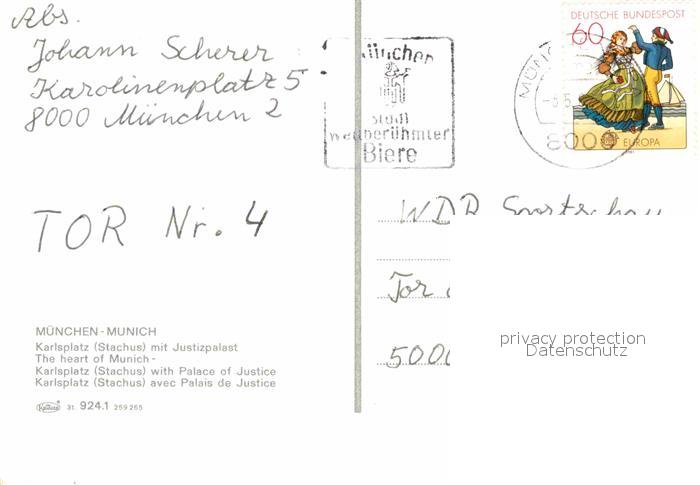 Abs.
Johann Scherer
Karolinenplatz 5
8000 München 2
München
Stadt
weltberühmter
Biere
MÜNC
-8.5.
8000
DEUTSCHE BUNDESPOST
60
EUROPA
TOR Nr. 4
WDR Sportschau
Tor
5000
MÜNCHEN - MUNICH
Karlsplatz (Stachus) mit Justizpalast
The heart of Munich -
Karlsplatz (Stachus) with Palace of Justice
Karlsplatz (Stachus) avec Palais de Justice
Krüger 31 924.1 259265
privacy protection
Datenschutz